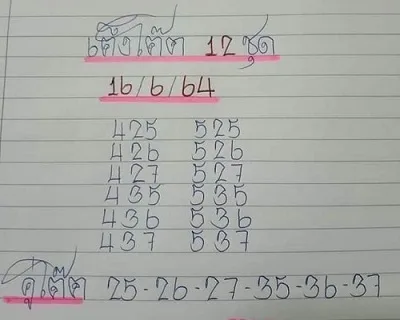 เต็งโต๊ด 12 ชุด
16/6/64
425 525
426 526
427 527
435 535
436 536
437 537
คู่โต๊ด 25-26-27-35-36-37